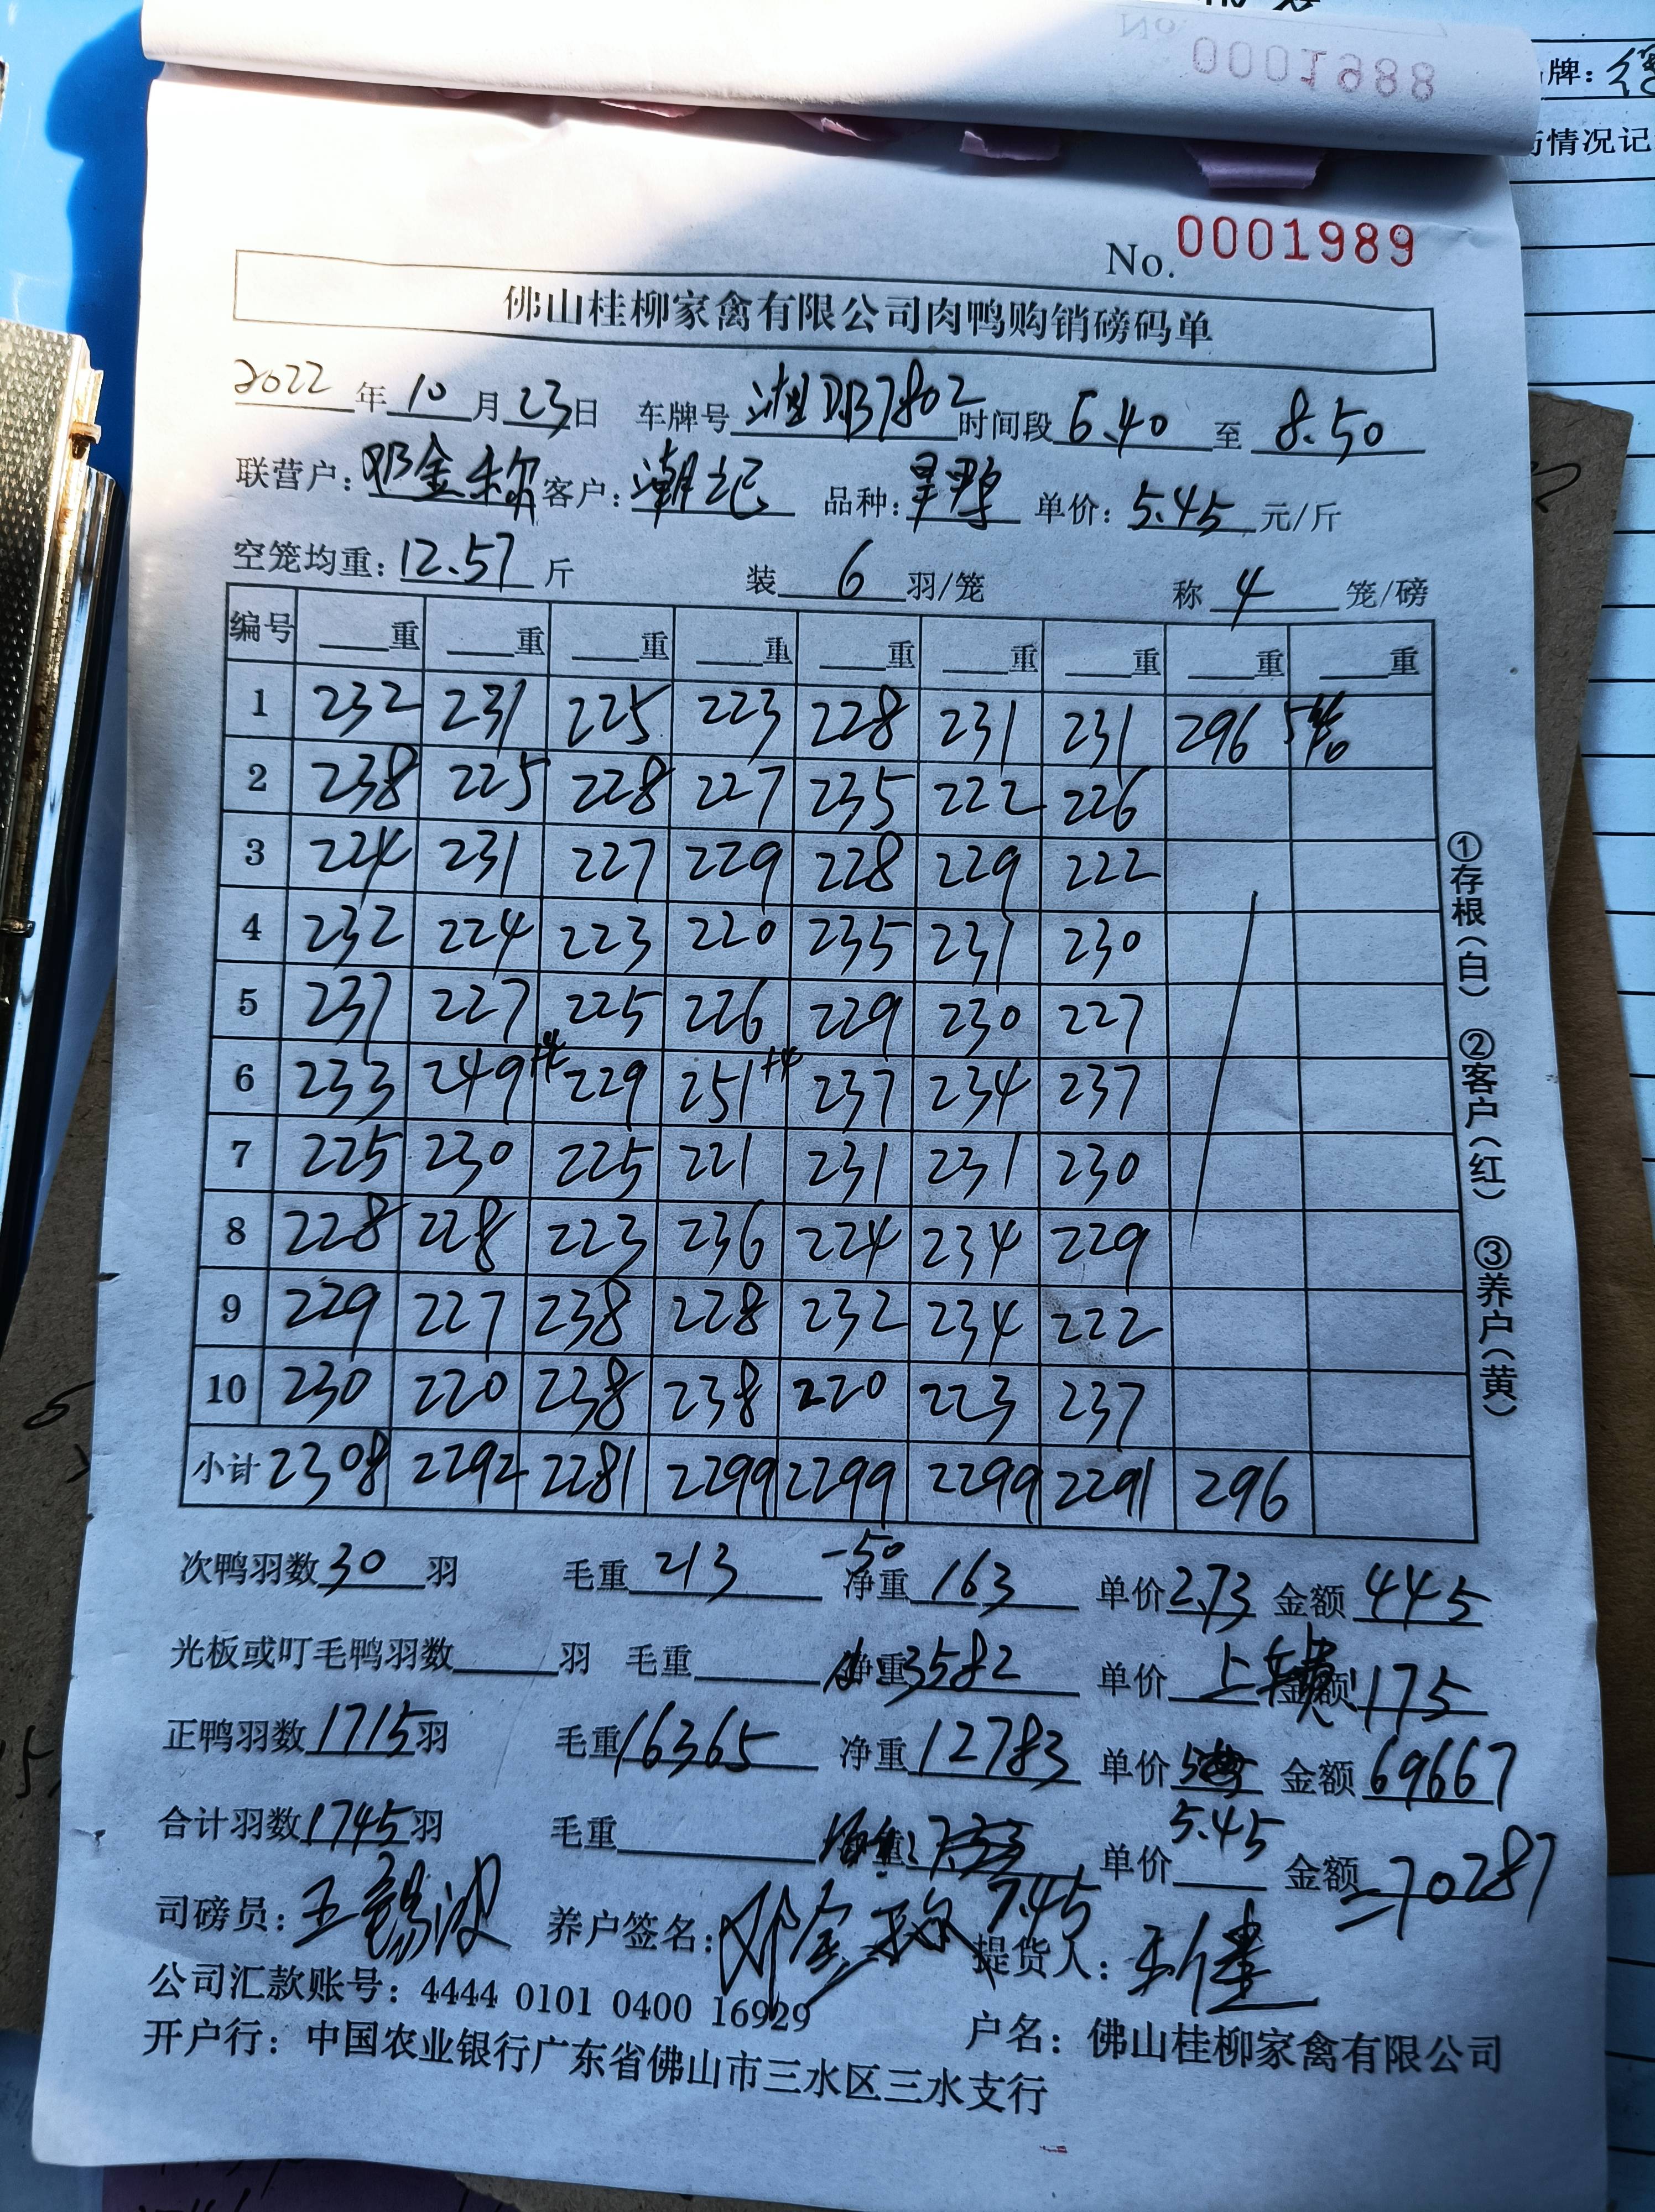 0001988
牌:
情况记
No. 0001989
佛山桂柳家禽有限公司肉鸭购销磅码单
2022年10月23日 车牌号 湘DB7802 时间段 6.40 至 8.50
联营户: 邓金称 客户: 潮记 品种: 单价: 5.45 元/斤
空笼均重: 12.57 斤 装 6 羽/笼 称 4 笼/磅
编号 重 重 重 重 重 重 重 重 重
1 232 231 225 223 228 231 231 296
2 238 225 228 227 235 222 226
3 224 231 227 229 228 229 222
4 232 224 223 220 235 231 230
5 237 227 225 226 229 230 227
6 233 249 229 251 237 234 237
7 225 230 225 221 231 231 230
8 228 228 223 236 224 234 229
9 229 227 238 228 232 234 222
10 230 220 238 238 220 223 237
小计 2308 2292 2281 2299 2299 2299 2291 296
次鸭羽数 30 羽 毛重 213 -50 净重 163 单价 2.73 金额 445
光板或叮毛鸭羽数 羽 毛重 净重 3582 单价 上车费 金额 175
正鸭羽数 1715 羽 毛重 16365 净重 12783 单价 金额 69667
合计羽数 1745 羽 毛重 净重 单价 5.45 金额 =70287
7.45
司磅员: 王锡波 养户签名: 邓金称 提货人:
公司汇款账号: 4444 0101 0400 16929 户名: 佛山桂柳家禽有限公司
开户行: 中国农业银行广东省佛山市三水区三水支行
①存根(白) ②客户(红) ③养户(黄)